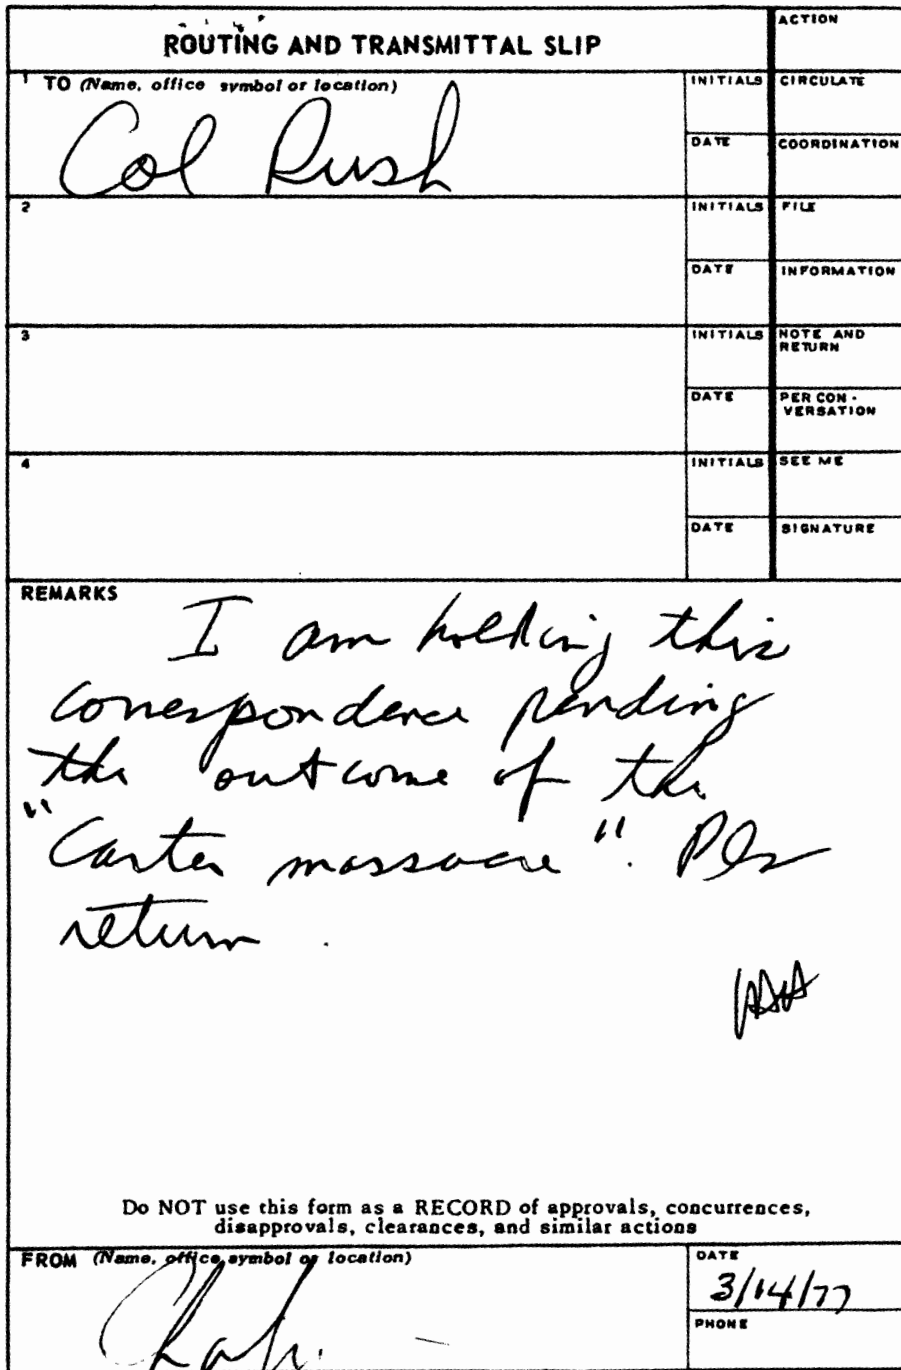 ROUTING AND TRANSMITTAL SLIP
ACTION
1 TO (Name, office symbol or location)
INITIALS
CIRCULATE
Col Rush
DATE
COORDINATION
2
INITIALS
FILE
DATE
INFORMATION
3
INITIALS
NOTE AND
RETURN
DATE
PER CON-
VERSATION
4
INITIALS
SEE ME
DATE
SIGNATURE
REMARKS
I am holding this
correspondence pending
the outcome of the
"Carter massacre". Pls
return.
Do NOT use this form as a RECORD of approvals, concurrences,
disapprovals, clearances, and similar actions
FROM (Name, office symbol or location)
DATE
3/14/77
PHONE